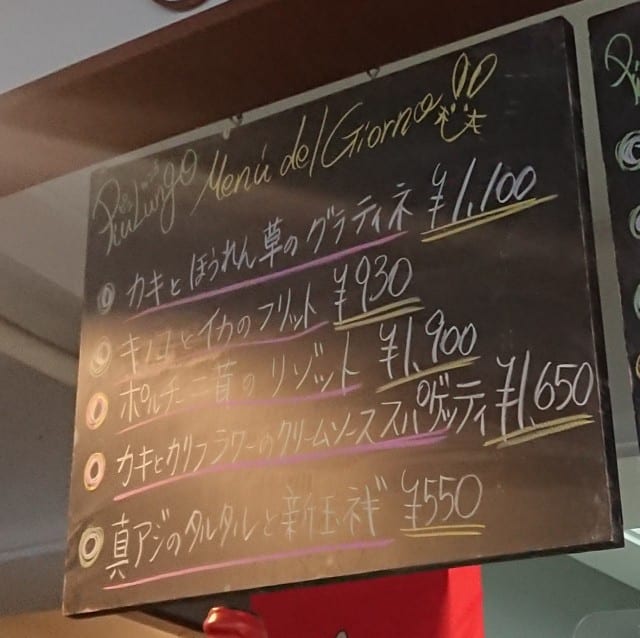 PiùLungo Menú del Giorno!!
カキとほうれん草のグラティネ ¥1,100
キノコとイカのフリット ¥930
ポルチーニ茸のリゾット ¥1,900
カキとカリフラワーのクリームソーススパゲッティ ¥1,650
真アジのタルタルと新玉ネギ ¥550